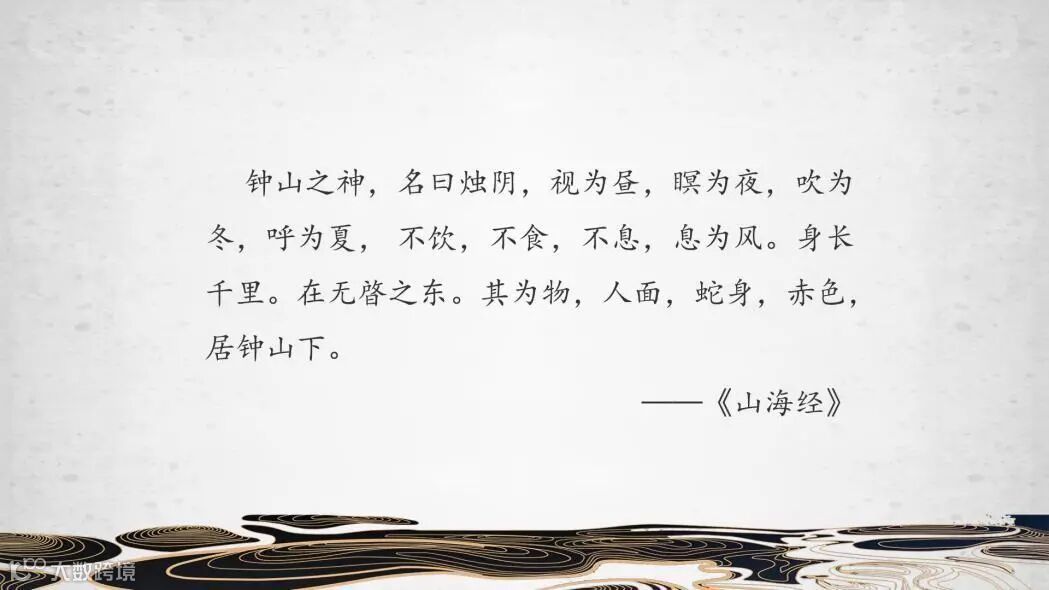 钟山之神，名曰烛阴，视为昼，瞑为夜，吹为
冬，呼为夏， 不饮，不食，不息，息为风。身长
千里。在无啓之东。其为物，人面，蛇身，赤色，
居钟山下。
——《山海经》
大数跨境